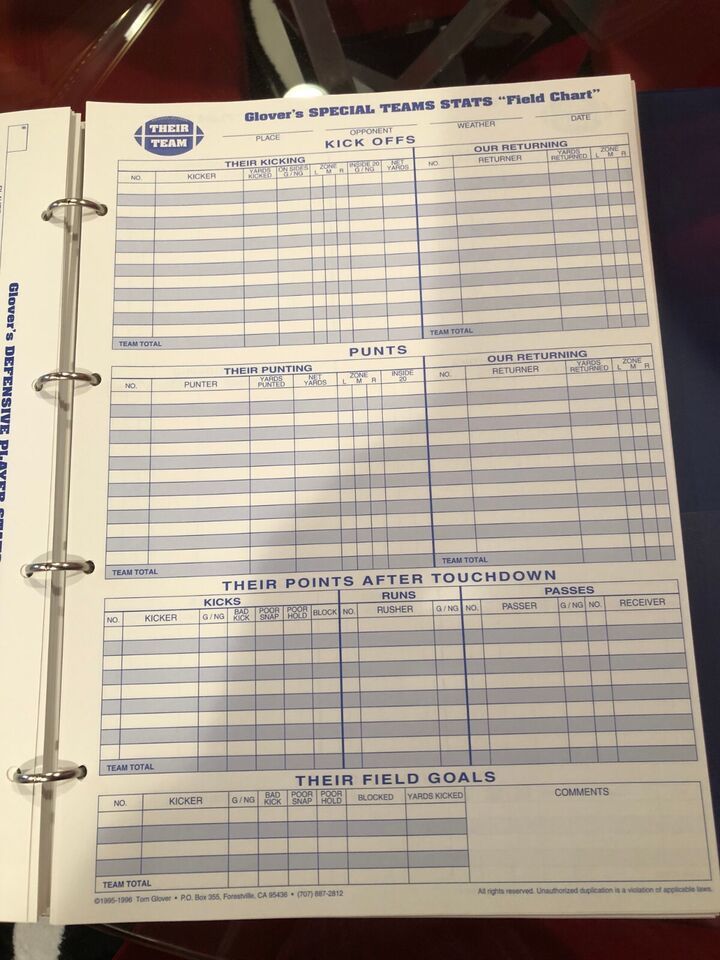 Glover's SPECIAL TEAMS STATS "Field Chart"
THEIR
TEAM
PLACE OPPONENT WEATHER DATE
KICK OFFS
THEIR KICKING OUR RETURNING
NO. KICKER YARDS KICKED ON SIDES G / NG ZONE L M R INSIDE 20 G / NG NET YARDS NO. RETURNER YARDS RETURNED ZONE L M R
TEAM TOTAL TEAM TOTAL
PUNTS
THEIR PUNTING OUR RETURNING
NO. PUNTER YARDS PUNTED NET YARDS ZONE L M R INSIDE 20 NO. RETURNER YARDS RETURNED ZONE L M R
TEAM TOTAL TEAM TOTAL
THEIR POINTS AFTER TOUCHDOWN
KICKS RUNS PASSES
NO. KICKER G / NG BAD KICK POOR SNAP POOR HOLD BLOCK NO. RUSHER G / NG NO. PASSER G / NG NO. RECEIVER
TEAM TOTAL
THEIR FIELD GOALS
NO. KICKER G / NG BAD KICK POOR SNAP POOR HOLD BLOCKED YARDS KICKED COMMENTS
TEAM TOTAL
©1995-1996 Tom Glover • P.O. Box 355, Forestville, CA 95436 • (707) 887-2812 All rights reserved. Unauthorized duplication is a violation of applicable laws.
Glover's DEFENSIVE PLAYER